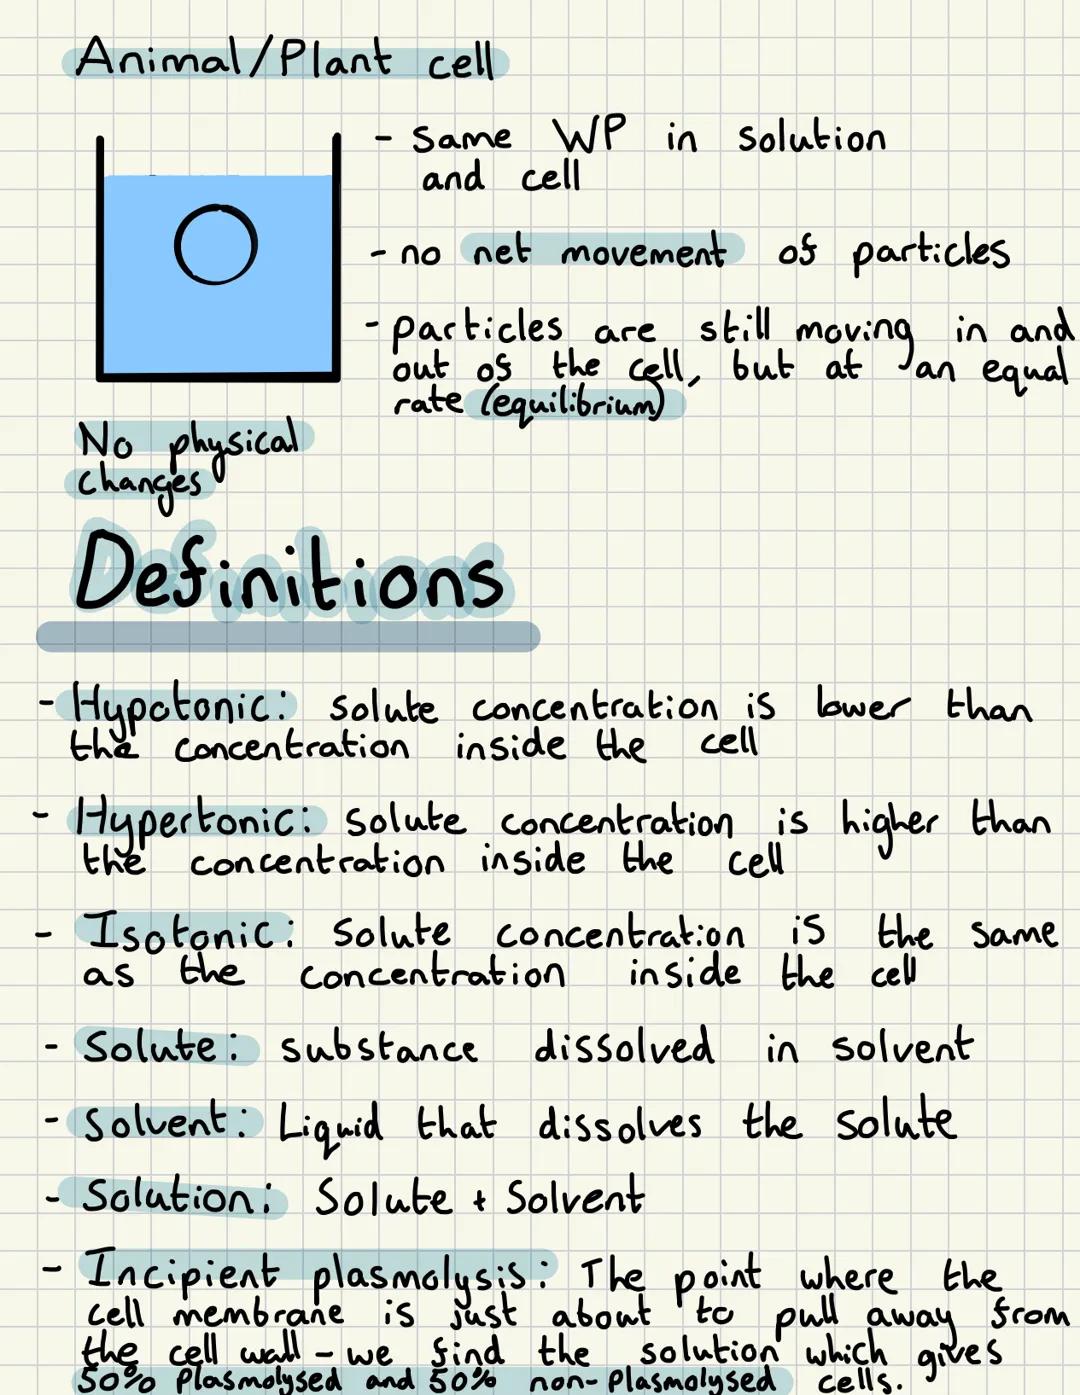 Animal/Plant cell
- Same WP in solution
and cell
- no net movement of particles
- particles are still moving in and
out of the cell, but at an equal
rate (equilibrium)
No physical
changes
Definitions
- Hypotonic: solute concentration is lower than
the concentration inside the cell
- Hypertonic: solute concentration is higher than
the concentration inside the cell
- Isotonic: solute concentration is the same
as the concentration inside the cell
- Solute: substance dissolved in solvent
- Solvent: Liquid that dissolves the solute
- Solution: Solute + Solvent
- Incipient plasmolysis: The point where the
cell membrane is just about to pull away from
the cell wall - we find the solution which gives
50% Plasmolysed and 50% non-Plasmolysed cells.